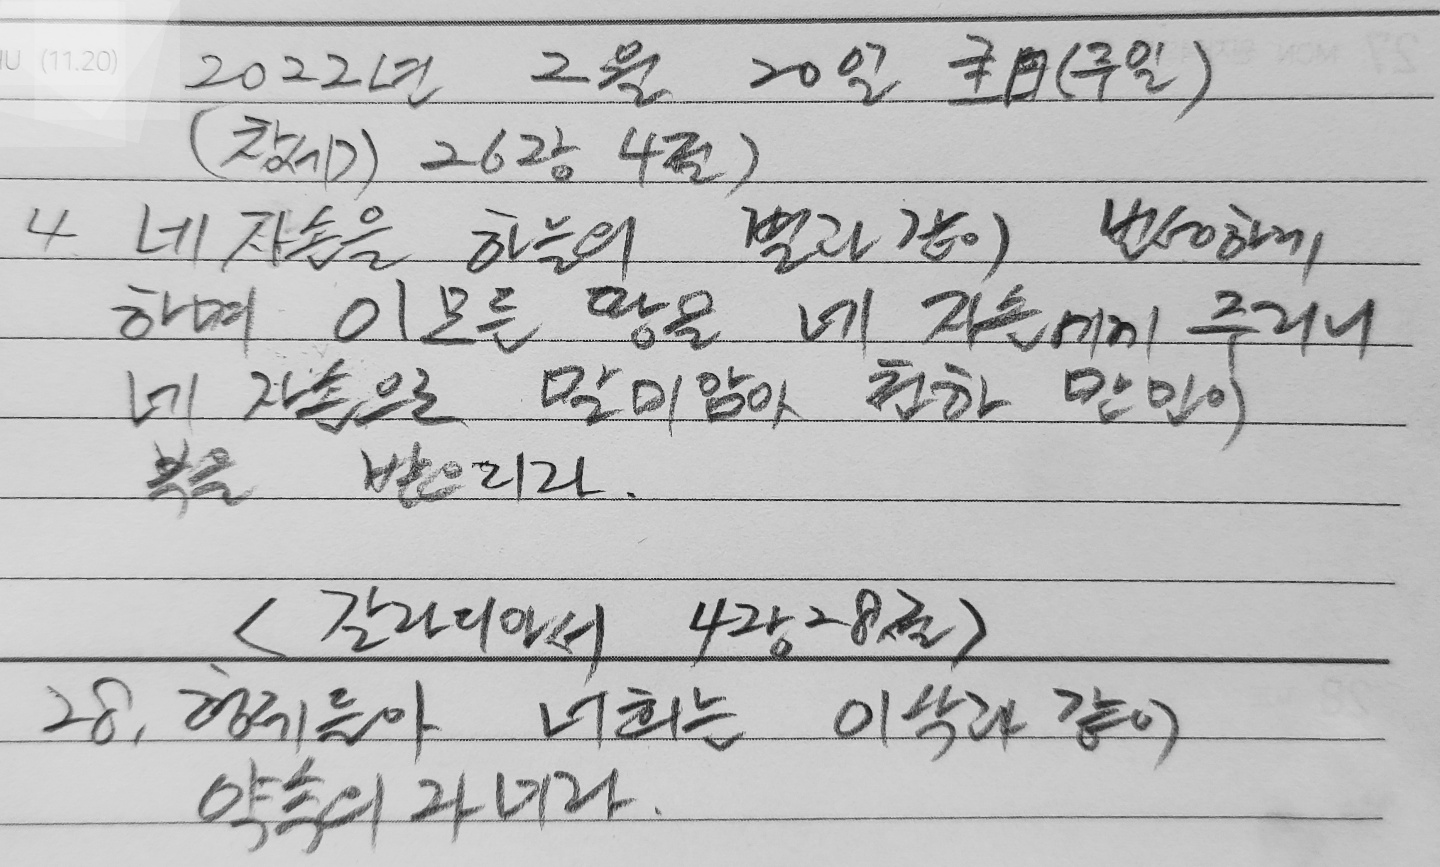 (11.20)
2022년 2월 20일 主日(주일)
(창세기) 26장 4절)
4 네 자손을 하늘의 별과 같이 번성하게
하며 이 모든 땅을 네 자손에게 주리니
네 자손으로 말미암아 천하 만민이
복을 받으리라.
<갈라디아서 4장 28절>
28. 형제들아 너희는 이삭과 같이
약속의 자녀라.